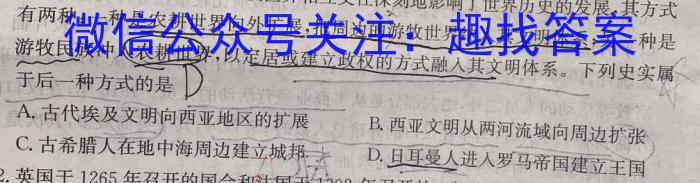 深刻地影响了世界历史的发展,其方式
有两种,一种是农耕世界向外扩展,把周边的游牧世界 一种是
微信公众号关注:趣找答案
游牧民族冲 农耕世界,以定居或建立政权的方式融入其文明体系。下列史实属
于后一种方式的是 D
A. 古代埃及文明向西亚地区的扩展 B. 西亚文明从两河流域向周边扩张
C. 古希腊人在地中海周边建立城邦 D. 日耳曼人进入罗马帝国建立王国
2. 英国于 1265 年召开的国会和法国于 1302 年召开的